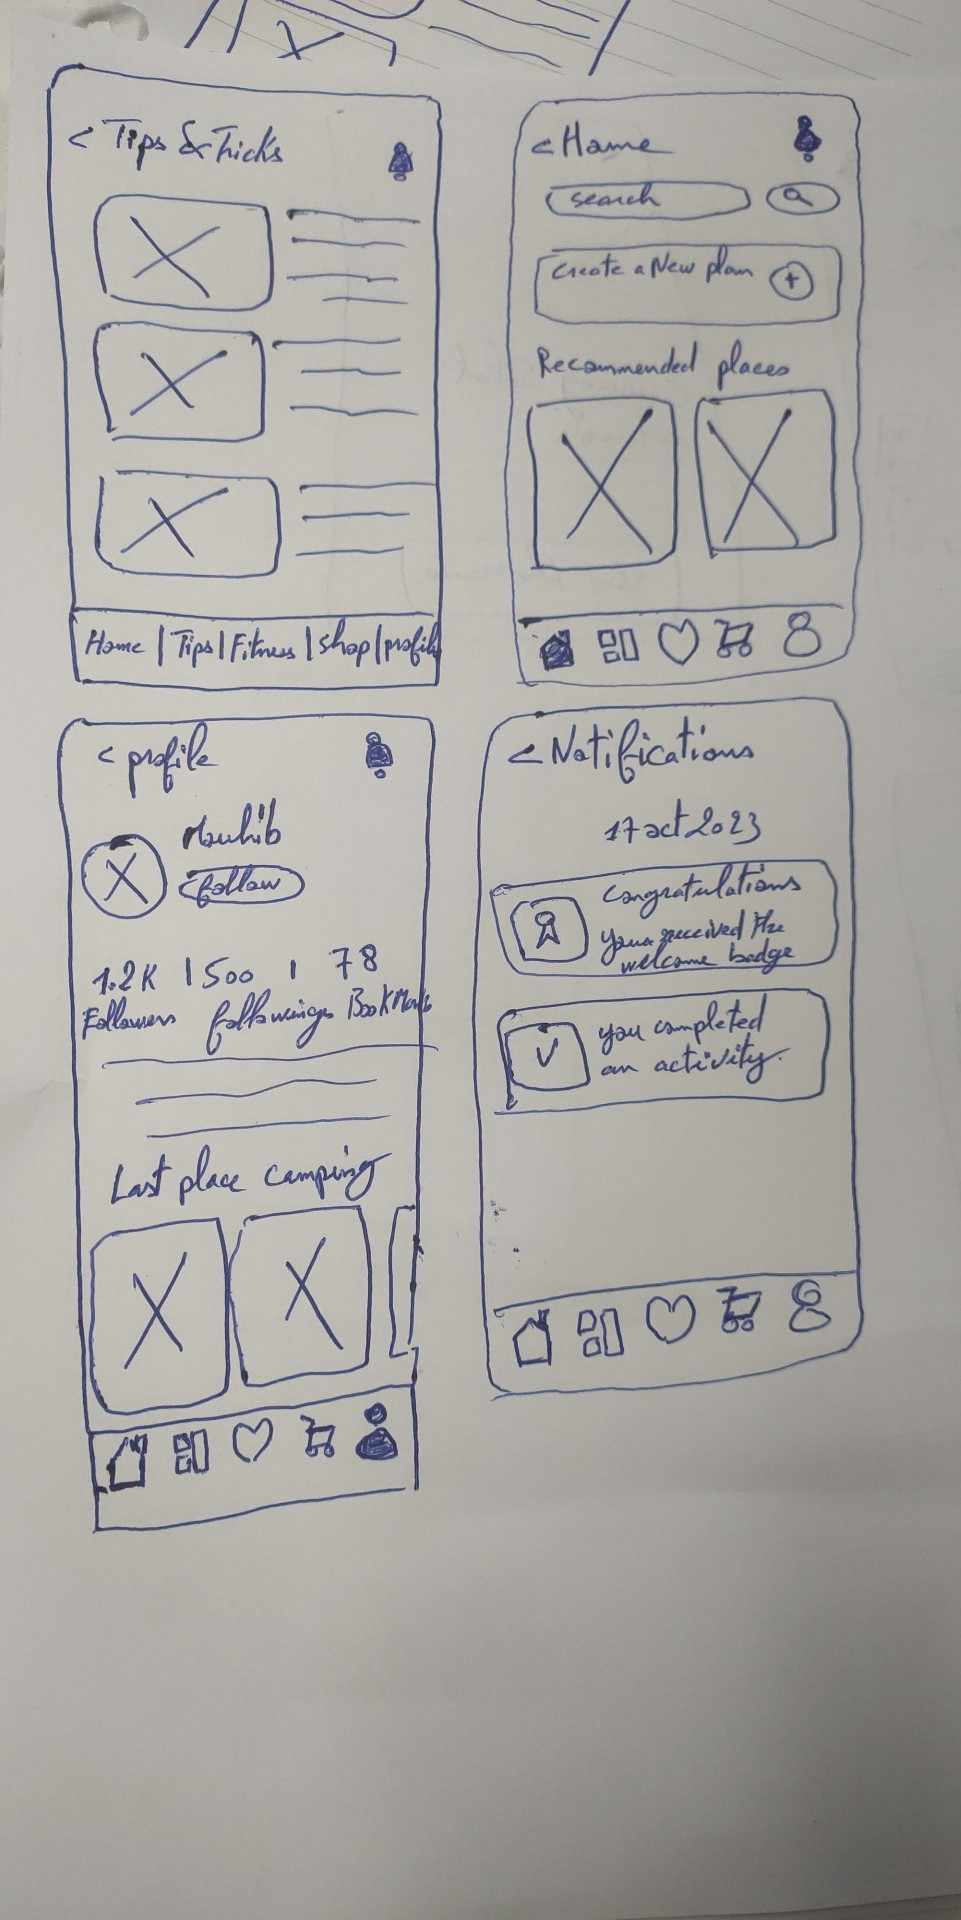 < Tips & Tricks
Home | Tips | Fitness | Shop | profile
< Home
search
Create a New plan +
Recommended places
< profile
Mouhib
follow
1.2K | 500 | 78
Followers followings BookMarks
Last place camping
< Notifications
17 oct 2023
Congratulations
received the
welcome badge
you completed
an activity.